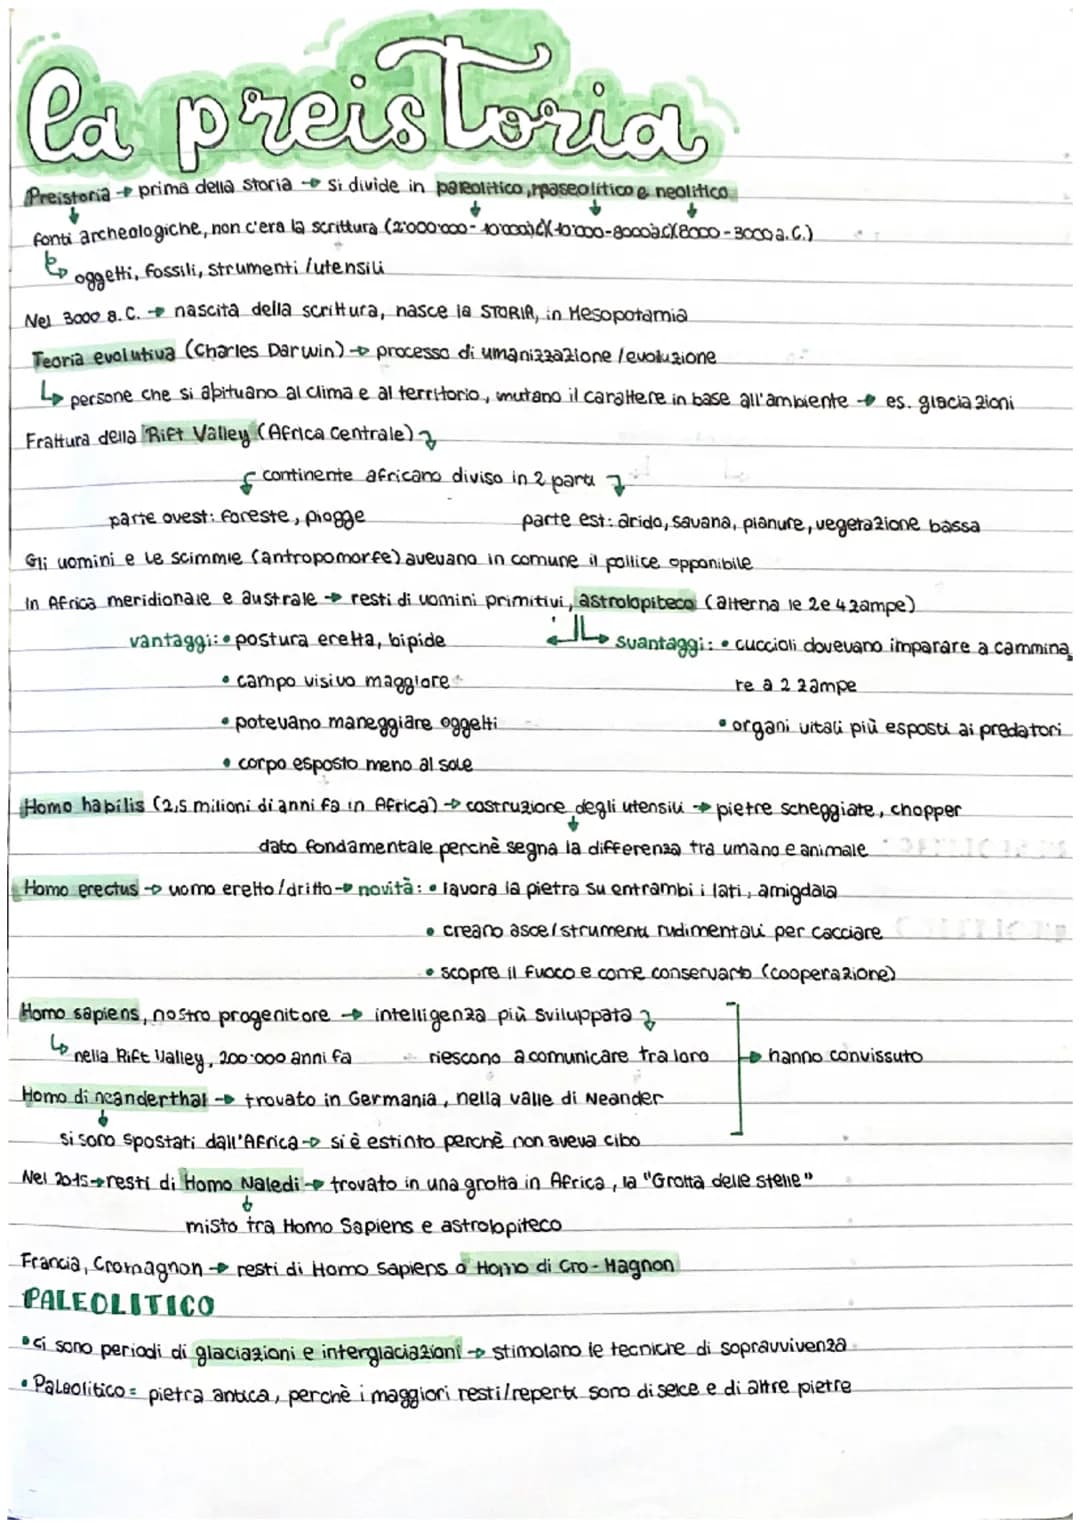 la preistoria
Preistoria → prima della storia → si divide in paleolitico, mpaseolitico e neolitico
fonti archeologiche, non c'era la scrittura (2'000'000-10'000a.C)(10'000-8000a.C)(8000-3000 a.C.)
↳ oggetti, fossili, strumenti/utensili
Nel 3000 a.C. → nascita della scrittura, nasce la STORIA, in Mesopotamia
Teoria evolutiva (Charles Darwin) → processo di umanizzazione/evoluzione
↳ persone che si abituano al clima e al territorio, mutano il carattere in base all'ambiente → es. glaciazioni
Frattura della Rift Valley (Africa Centrale)
continente africano diviso in 2 parti
parte ovest: foreste, piogge parte est: arido, savana, pianure, vegetazione bassa
Gli uomini e le scimmie (antropomorfe) avevano in comune il pollice opponibile
In Africa meridionale e australe → resti di uomini primitivi, astrolopiteco (alterna le 2 e 4 zampe)
vantaggi: • postura eretta, bipide svantaggi: • cuccioli dovevano imparare a cammina
• campo visivo maggiore re a 2 zampe
• potevano maneggiare oggetti • organi vitali più esposti ai predatori
• corpo esposto meno al sole
Homo habilis (2,5 milioni di anni fa in Africa) → costruzione degli utensili → pietre scheggiate, chopper
dato fondamentale perchè segna la differenza tra umano e animale
Homo erectus → uomo eretto/dritto → novità: • lavora la pietra su entrambi i lati, amigdala
• creano asce/strumenti rudimentali per cacciare
• scopre il fuoco e come conservarlo (cooperazione)
Homo sapiens, nostro progenitore → intelligenza più sviluppata
↳ nella Rift Valley, 200'000 anni fa riescono a comunicare tra loro → hanno convissuto
Homo di neanderthal → trovato in Germania, nella valle di Neander
si sono spostati dall'Africa → si è estinto perchè non aveva cibo
Nel 2015 → resti di Homo Naledi → trovato in una grotta in Africa, la "Grotta delle stelle"
misto tra Homo Sapiens e astrolopiteco
Francia, Cromagnon → resti di Homo sapiens o Homo di Cro-Magnon
PALEOLITICO
• ci sono periodi di glaciazioni e interglaciazioni → stimolano le tecniche di sopravvivenza
• Paleolitico = pietra antica, perchè i maggiori resti/reperti sono di selce e di altre pietre